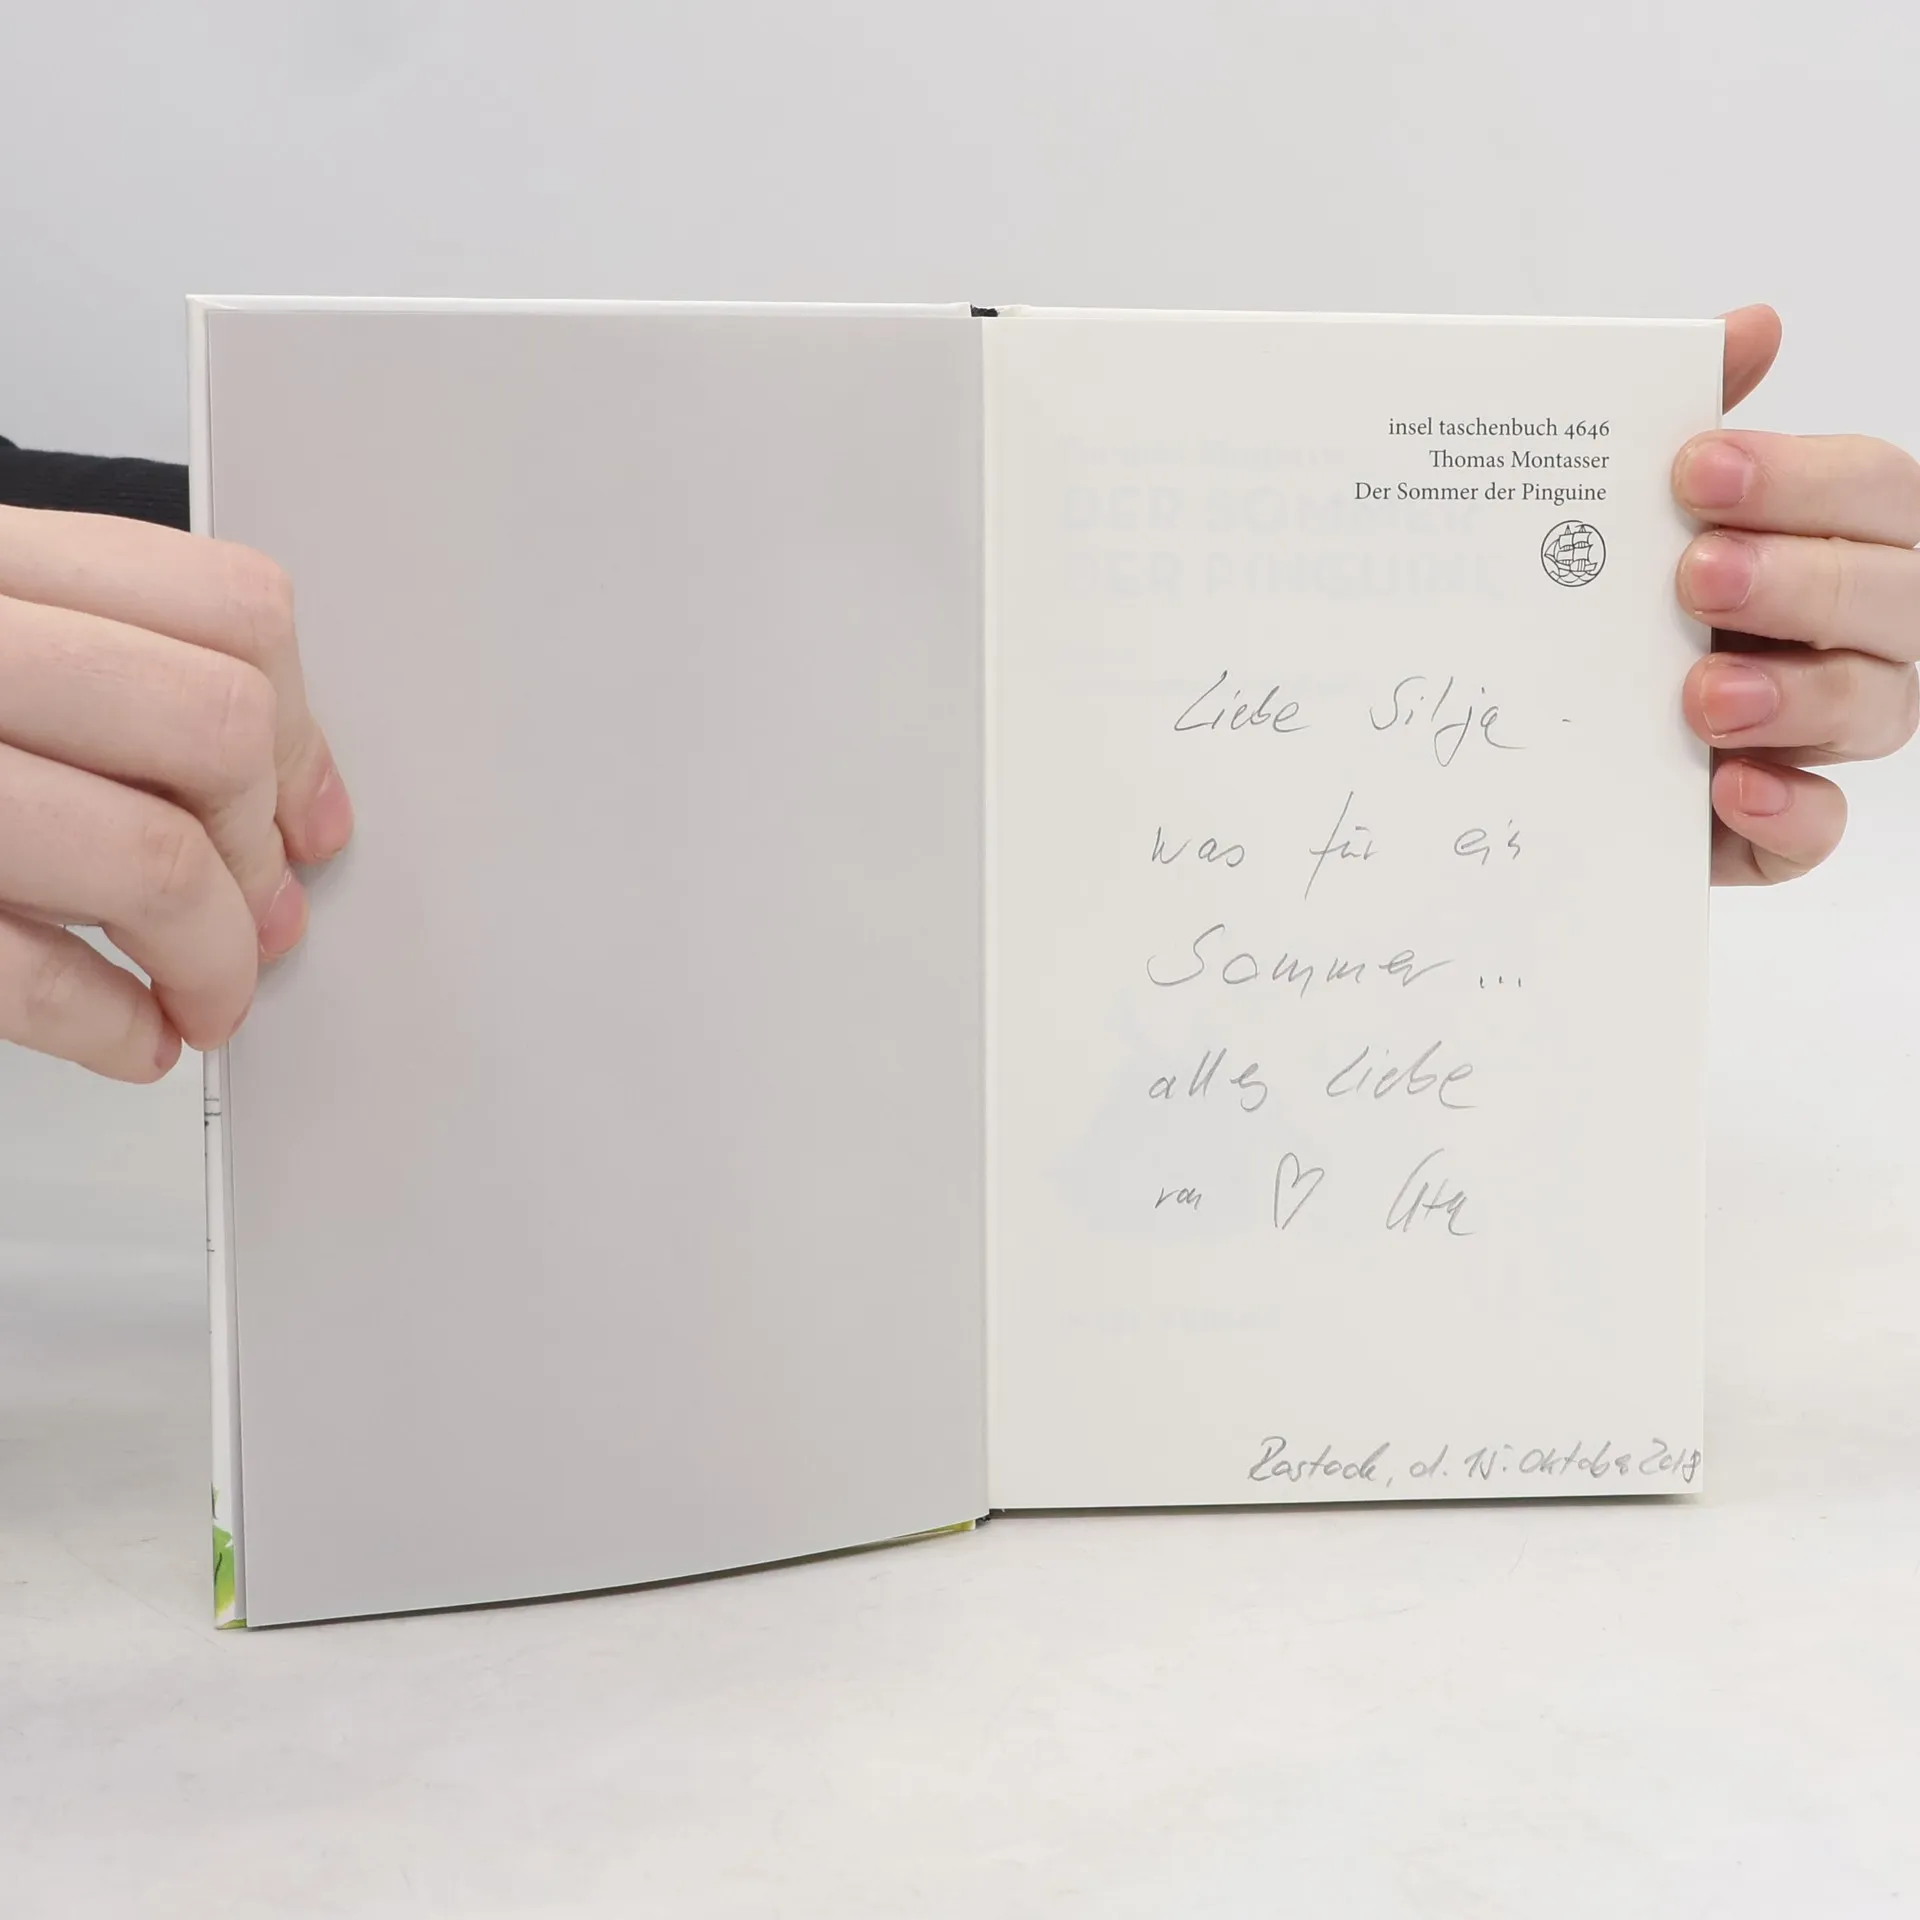 insel taschenbuch 4646
Thomas Montasser
Der Sommer der Pinguine
Liebe Silja -
was für ein
Sommer ...
alles Liebe
von ♡ Uta
Rostock, d. 15. Oktober 2018